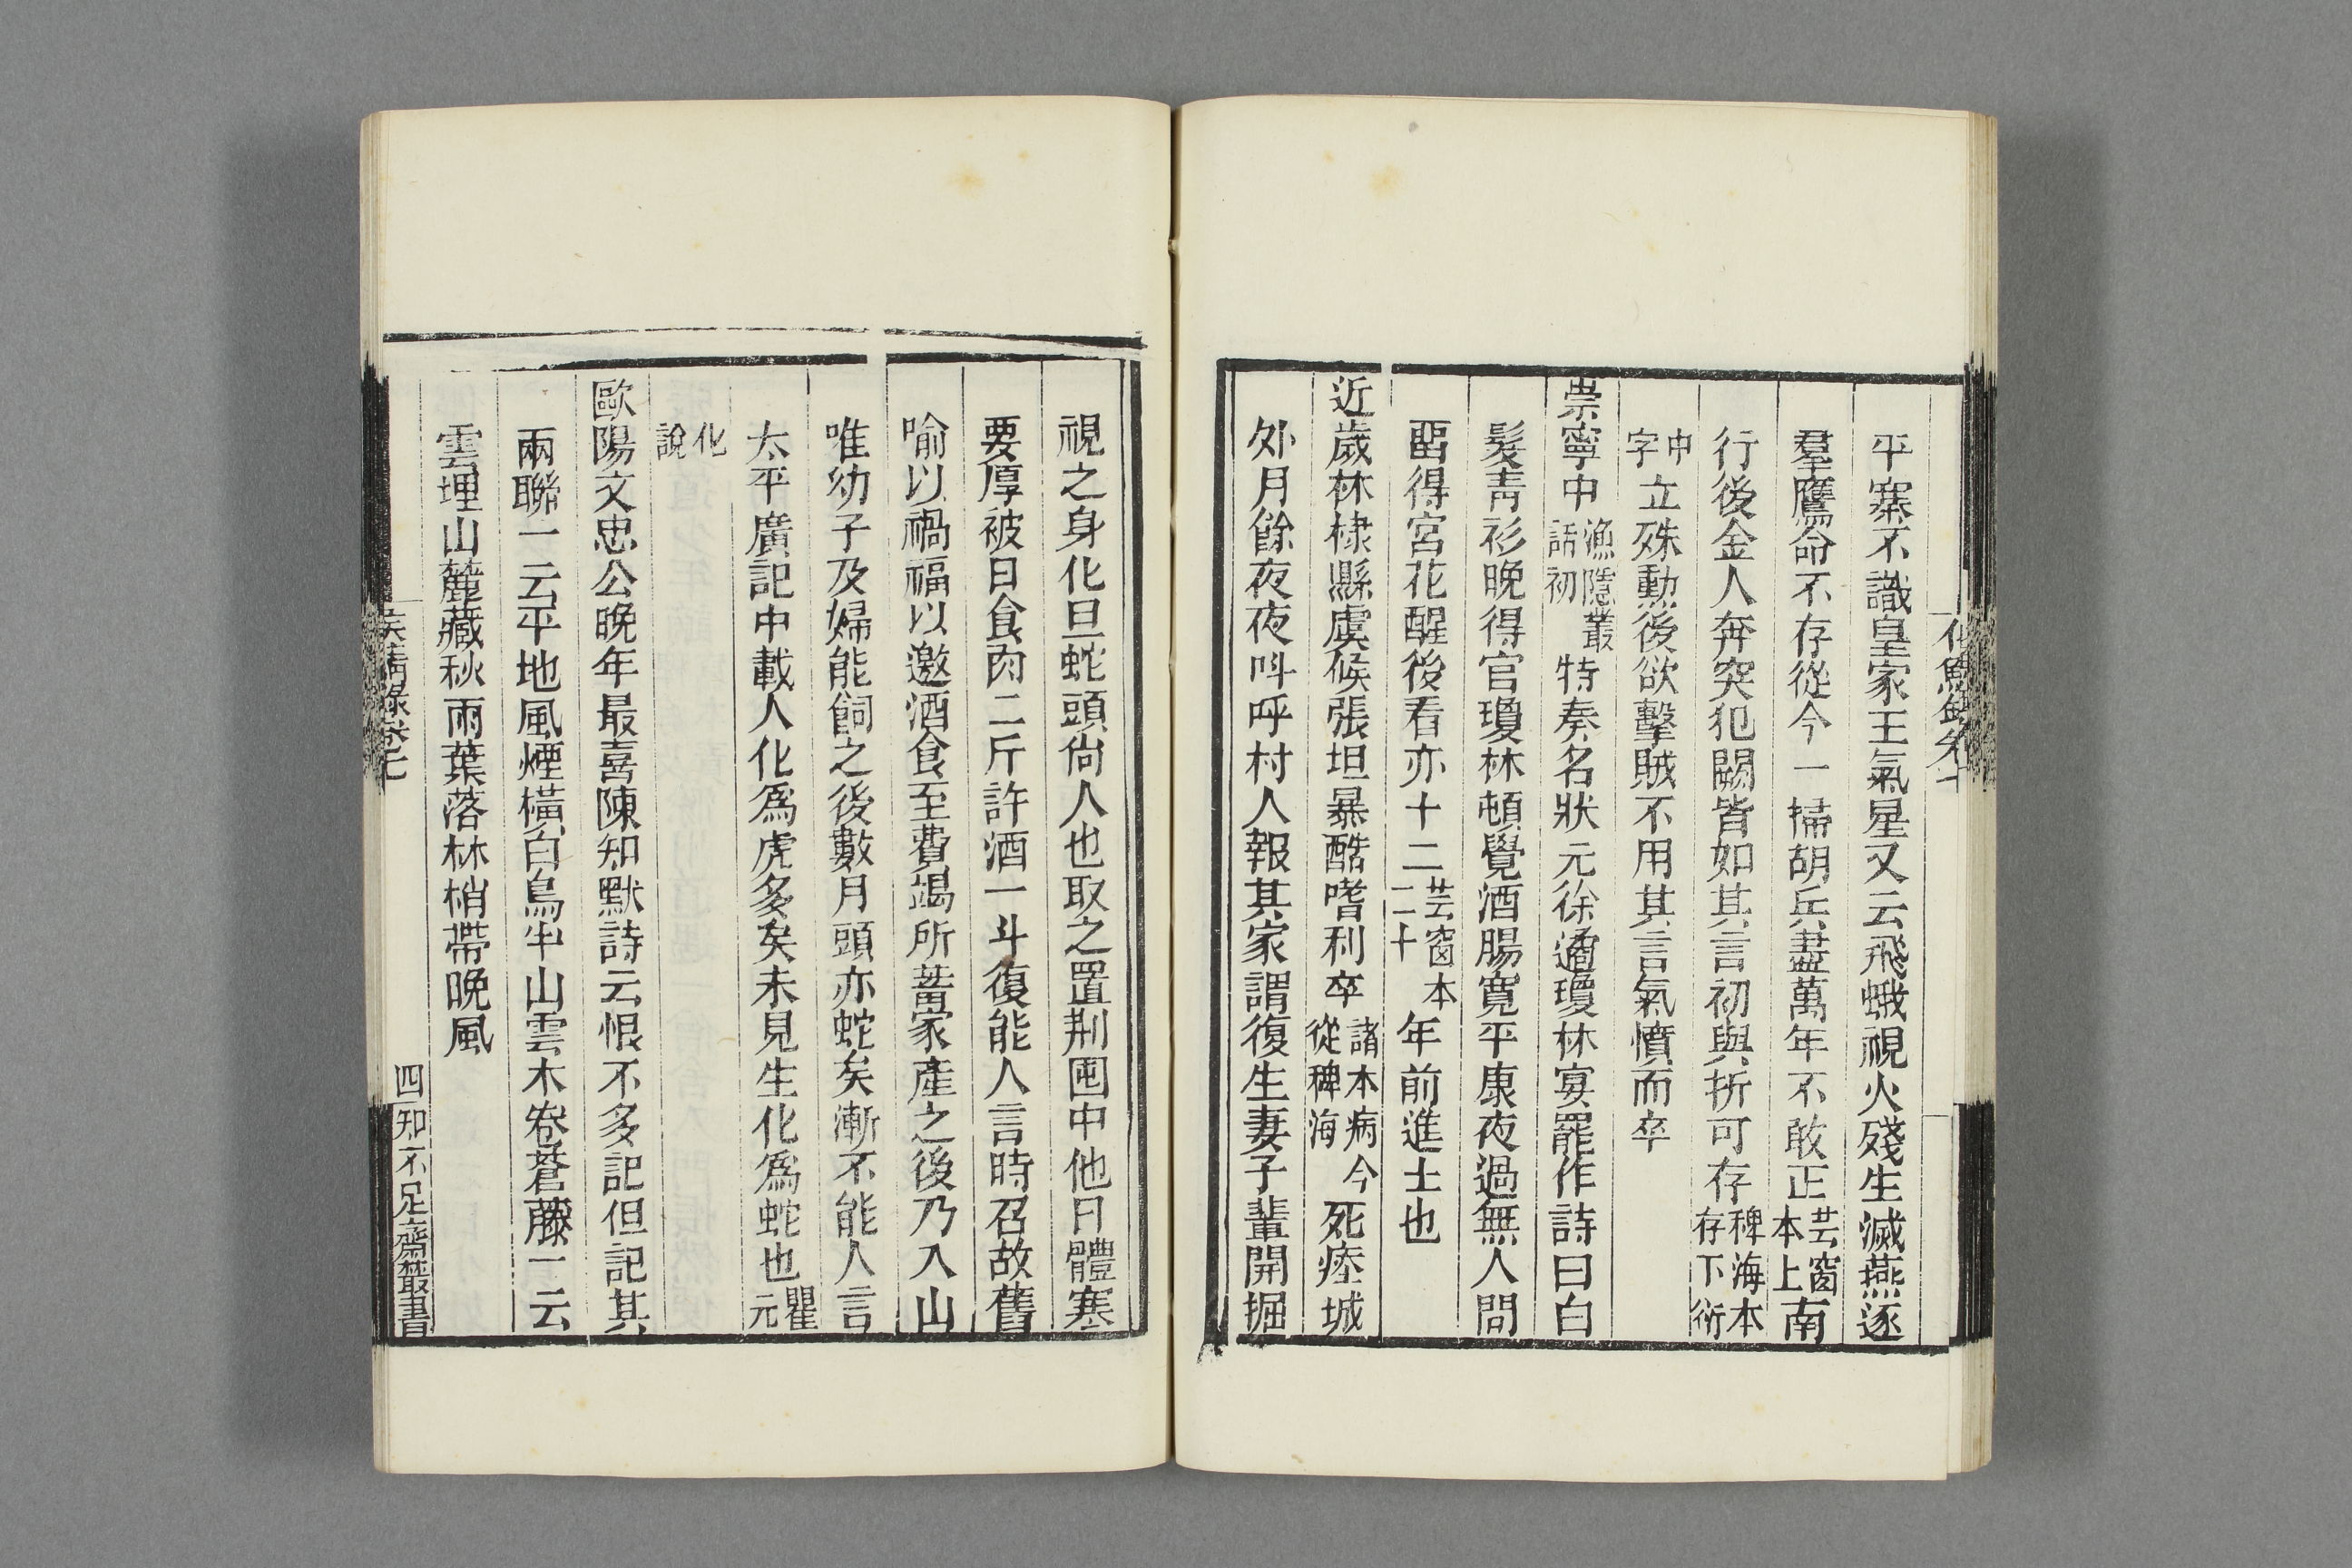 平寨不識皇家王氣星又云飛蛾視火殘生滅燕逐
羣鷹命不存從今一掃胡兵盡萬年不敢正芸窗本上南
行後金人奔突犯闕皆如其言初與折可存稗海本存下衍
中字立殊勲後欲擊賊不用其言氣憤而卒
崇寧中漁隱叢話初特奏名狀元徐遹瓊林宴罷作詩曰白
髮靑衫晚得官瓊林頓覺酒腸寛平康夜過無人問
畱得宮花醒後看亦十二芸窗本二十年前進士也
近歲林棣縣虞候張坦暴酷嗜利卒諸本病今從稗海死瘞城
外月餘夜夜呌呼村人報其家謂復生妻子輩開掘
視之身化旦蛇頭尙人也取之置荆囤中他日體寒
要厚被日食肉二斤許酒一斗復能人言時召故舊
喻以禍福以邀酒食至費竭所蓄家產之後乃入山
唯幼子及婦能飼之後數月頭亦蛇矣漸不能人言
太平廣記中載人化爲虎多矣未見生化爲蛇也瞿元
化說
歐陽文忠公晚年最喜陳知默詩云恨不多記但記其
兩聯一云平地風煙橫白鳥半山雲木卷蒼藤一云
雲埋山麓藏秋雨葉落林梢帶晚風
侯鯖錄卷七
四
知不足齋叢書